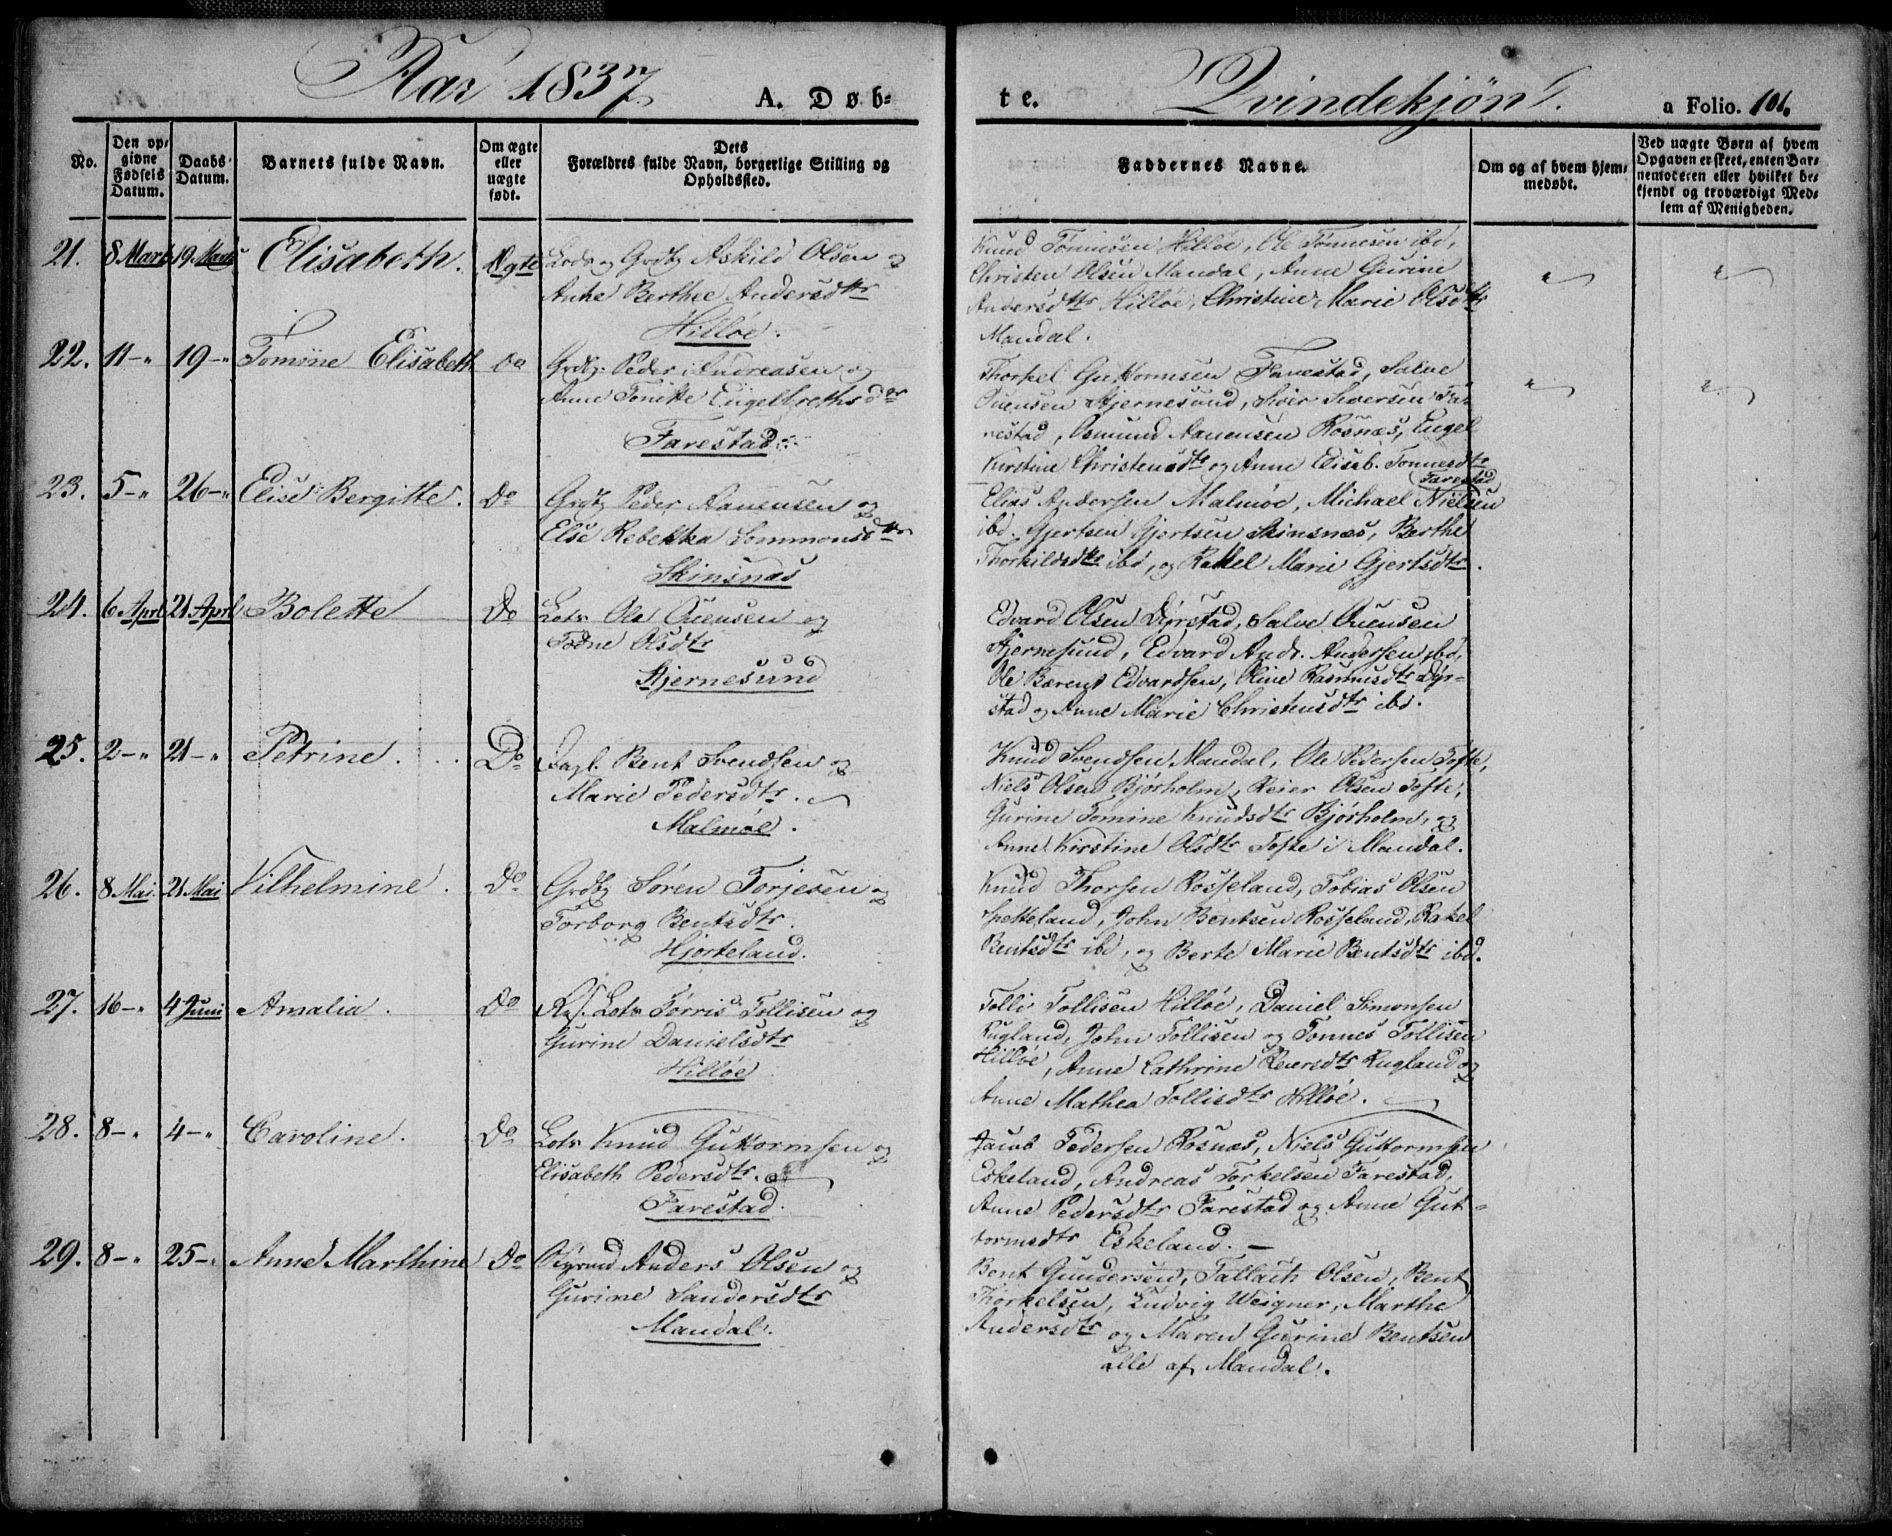 Aar 1837
A. Døb-
te.
Qvindekjøn.
a Folio. 101.
No.
Den op-
givne
Fødsels
Datum.
Daabs-
Datum.
Barnets fulde Navn.
Om ægte
eller
uægte
født.
Dets
Forældres fulde Navn, borgerlige Stilling og
Opholdssted.
Faddernes Navne.
Om og af hvem hjem-
medøbt.
Ved uægte Børn af hvem
Opgaven er skeet, enten Bar-
nemoderen eller hvilket be-
kjendt og troværdigt Med-
lem af Menigheden.
21. 8 Marts 19 Marts Elisabeth. Ægte Lods og Grdbg Askild Olsen og
Anne Berthee Andersdtr
Hilløe.
Knud Tønnesen Hilløe, Ole Tønnesen ibd,
Christen Olsen Mandal, Anne Gurine
Andersdtr Hilløe, Christine Marie Olsdtr
Mandal.
22. 11 -"- 19 -"- Tomine Elisabeth do Grdbg. Peder Andreasen og
Anne Tonitte Engelbrethsdr
Farestad.
Thorkel Guttormsen Farestad, Salve
Ouensen Stjernesund, Siver Siversen Fa-
restad, Osmund Aanensen Rosnæs, Engel
Kirstine Christensdtr og Anne Elisab. Tonnesdtr
Farestad
23. 5 -"- 26 -"- Elise Bergitte. Do Grdbg Peder Aanensen og
Else Rebekka Sommonsdtr
Skinsnæs
Elias Andersen Malmøe, Michael Nielsen
ibd. Gjertsen Gjertsen Skinsnæs, Berthe
Thorkildsdtr ibd, og Rakel Marie Gjertsdtr.
24. 6 April 21 April Bolette Do Lots Ole Ouensen og
Todne Olsdtr
Stjernesund
Edvard Olsen Dyrstad, Salve Ouensen
Stjernesund, Edvard Andr. Andersen ibd,
Ole Bærent Edvardsen, Oline Rasmusdtr Dyr-
stad og Anne Marie Christensdtr ibd.
25. 2 -"- 21 -"- Petrine. Do Dagl. Bent Svendsen og
Marie Pedersdtr.
Malmøe.
Knud Svendsen Mandal, Ole Pedersen Tofte,
Niels Olsen Bjørholm, Reier Olsen Tofte,
Gurine Tomine Knudsdtr Bjørholm, og
Anne Kirstine Olsdtr Tofte i Mandal.
26. 8 Mai. 21 Mai Vilhelmine. Do Grdbg Søren Torjesen og
Torborg Bentsdtr.
Hjorteland.
Knud Thorsen Rosseland, Tobias Olsen
Spetteland, John Bentsen Rosseland, Rakel
Bentsdtr ibd, og Berte Marie Bentsdtr ibd.
27. 16 -"- 4 Juni Amalia. Do Res. Lots Tørris Tollisen og
Gurine Danielsdtr
Hilløe
Tolli Tollisen Hilløe, Daniel Simonsen
Rugland, John Tollisen og Tonnes Tollisen
Hilløe, Anne Cathrine Reiersdtr Rugland og
Anne Mathea Tollisdtr Hilløe.
28. 8 -"- 4 -"- Caroline. Do Lots Knud Guttormsen og
Elisabeth Pedersdtr.
Farestad.
Jacob Pedersen Rosnæs, Niels Guttormsen
Eskeland, Andreas Torkelsen Farestad,
Anne Pedersdtr Farestad og Anne Gut-
tormsdtr Eskeland.
29. 8 -"- 25 -"- Anne Marthine Do Styrmd Anders Olsen og
Gurine Sandersdtr
Mandal.
Bent Gundersen, Tallach Olsen, Bent
Thorkelsen, Ludvig Weigner, Marthe
Andersdtr og Maren Gurine Bentsen
alle af Mandal.